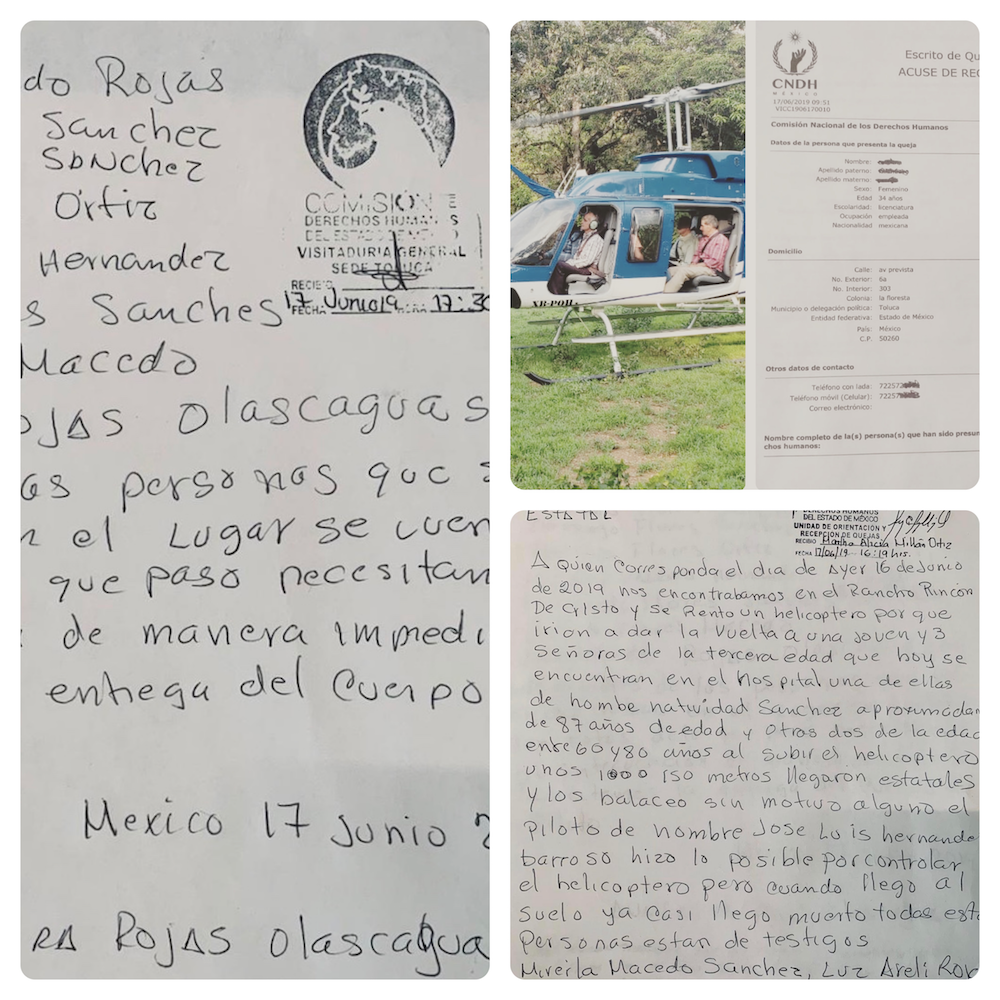 do Rojas
Sanchez
Sanchez
Ortiz
Hernandez
s Sanches
Macedo
OJAS Olascaguas
as personas que
n el Lugar se cuen
que paso necesitan
de manera impedi
entrega del Cuerpo
Mexico 17 Junio 2
RA Rojas Olascagua
COMISIÓN DE
DERECHOS HUMANOS
DEL ESTADO DE MÉXICO
VISITADURIA GENERAL
SEDE TOLUCA
RECIBIÓ
FECHA 17 Junio 19 HORA 17:30
XB-PQH
CNDH
MÉXICO
17/06/2019 09:51
VICC1906170010
Escrito de Qu
ACUSE DE REC
Comisión Nacional de los Derechos Humanos
Datos de la persona que presenta la queja
Nombre:
Apellido paterno:
Apellido materno:
Sexo: Femenino
Edad 34 años
Escolaridad: licenciatura
Ocupación empleada
Nacionalidad mexicana
Domicilio
Calle: av prevista
No. Exterior: 6a
No. Interior: 303
Colonia: la floresta
Municipio o delegación política: Toluca
Entidad federativa: Estado de México
País: México
C.P. 50260
Otros datos de contacto
Teléfono con lada: 722572
Teléfono móvil (Celular): 72257
Correo electrónico:
Nombre completo de la(s) persona(s) que han sido presun
chos humanos:
ESTATAL
DERECHOS HUMANOS
DEL ESTADO DE MÉXICO
UNIDAD DE ORIENTACIÓN Y
RECEPCIÓN DE QUEJAS
RECIBIO Martha Alicia Millán Ortiz
FECHA 17/06/19 16:19 hrs.
A quien Corresponda el dia de Ayer 16 de Junio
de 2019 nos encontrabamos en el Rancho Rincon
De Cristo y se Rento un helicoptero por que
irion a dar la vuelta a una joven y 3
Señoras de la tercera edad que hoy se
encuentran en el hospital una de ellas
de nombe natividad Sanchez aproximadan
de 87 años de edad y otras dos de la edad
entre 60 y 80 años al subir el helicoptero
unos 1000 150 metros llegaron estatales
y los balaceo sin motivo alguno el
piloto de nombre Jose Luis hernande
barroso hizo lo posible por controlar
el helicoptero pero cuando llego al
suelo ya casi llego muerto todas esta
personas estan de testigos
Mireila Macedo Sanchez, Luz Areli Ror